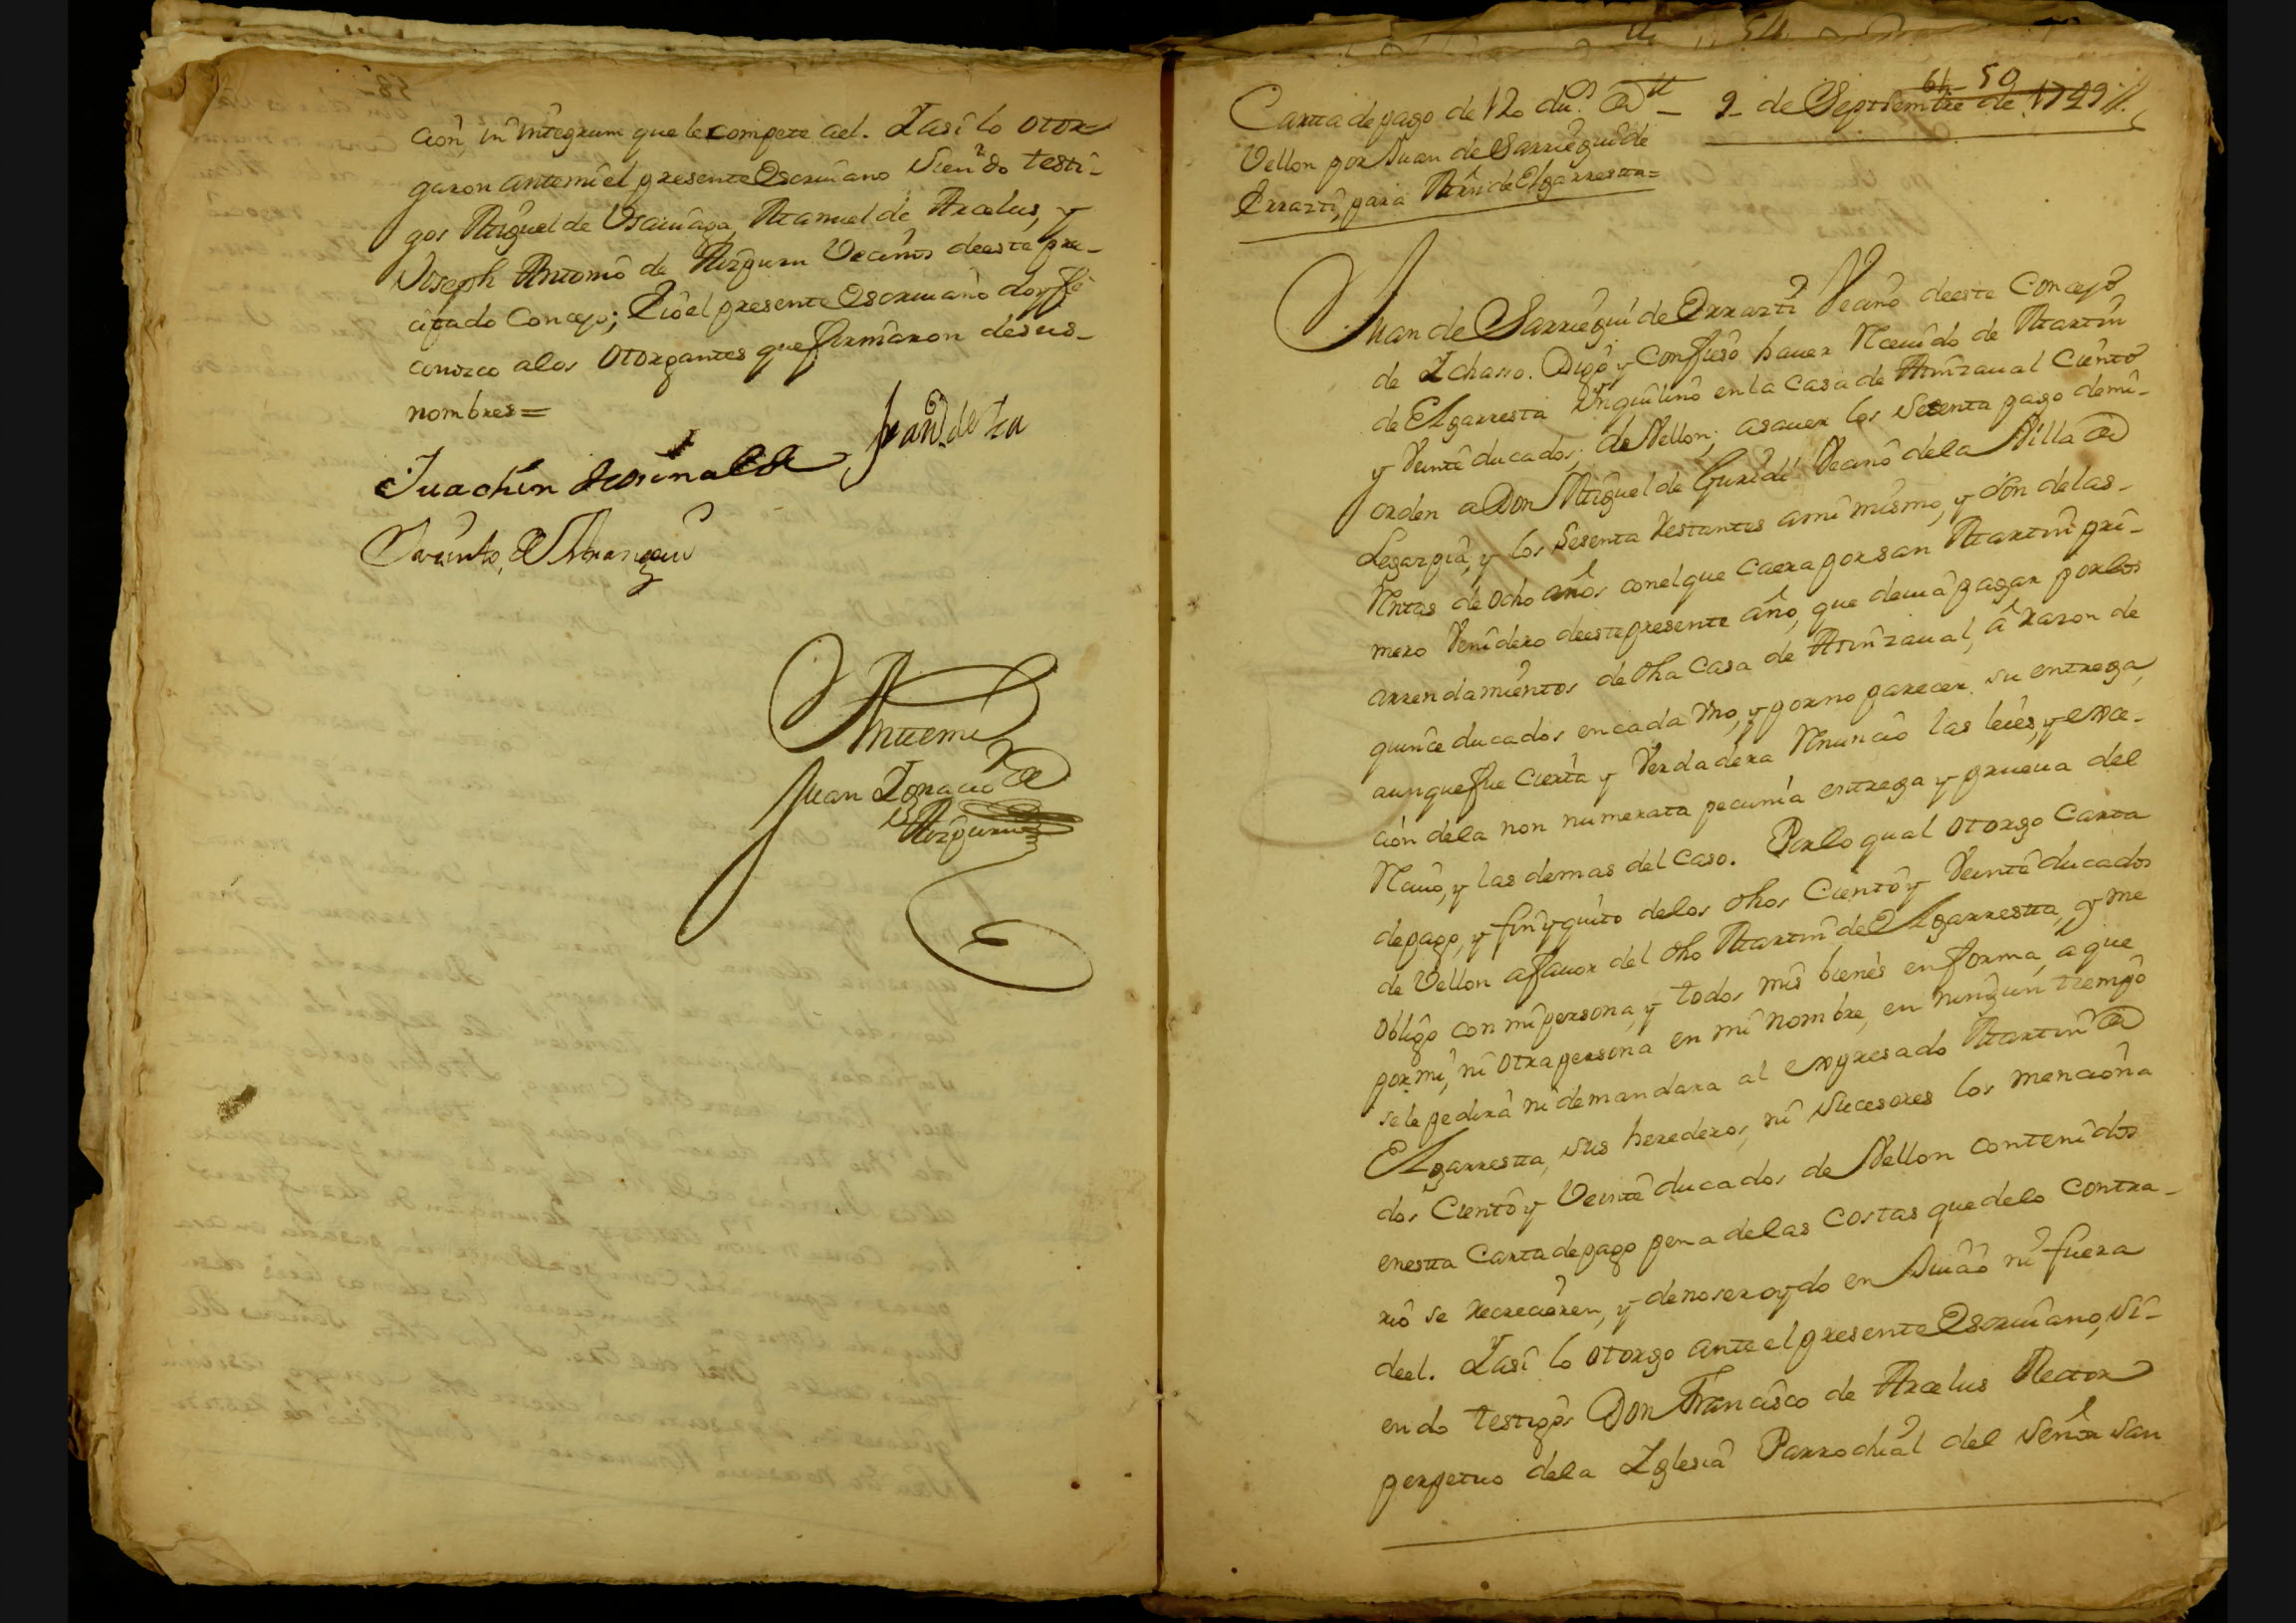 cion in integrum que le compete ael. Y asi lo otor-
garon antemi el presente Escriuano siendo testi-
gos Miguel de Vsauiaga, Manuel de Arcelus, y
Joseph Antonio de Aizpuru Vecinos de este pre-
citado Concejo; E io el presente Escriuano doy fé
conozco a los otorgantes que firmaron de sus-
nombres =
Juachin
Juan de
Jacinto de
Antemi
Juan Ignacio de
Aizpuru
64 50
Carta de pago de 120 du.s de — 9 de Septiembre de 1749
Vellon por Juan de Sarriegui de
Errazti, para Mrn de Elgarresta =
Juan de Sarriegui de Errazti Vecino de este Concejo
de Ychaso. Digo y Confieso hauer Reciuido de Martin
de Elgarresta Ynquilino en la Casa de Minzaual Ciento
y Veinte ducados de Vellon; asauer los Sesenta pago de mi-
orden a Don Miguel de Guridi Vecino de la Villa de
Legazpia, y los Sesenta Restantes ami mismo, y són de las-
Rentas de ocho años con el que Caera por san Martin pri-
mero Venidero de este presente año, que deuia pagar por los
arrendamientos de dha Casa de Minzaual, â razon de
quince ducados en cada vno, y por no parecer su entrega,
aunque fue Cierta y Verdadera Renuncio las leies, y exce-
cion de la non numerata pecunia entrega y prueua del
Reciuo, y las demas del Caso. Por lo qual otorgo Carta
de pago, y finyquito de los dhos Ciento y Veinte ducados
de Vellon a fauor del dho Martin de Elgarresta, y me
obligo con mi persona, y todos mis bienes en forma, â que
por mi, ni otra persona en mi nombre, en ningun tiempo
se le pedirá ni demandara al expresado Martin de
Elgarresta, sus herederos, ni sucesores los menciona
dos Ciento y Veinte ducados de Vellon contenidos
en esta Carta de pago pena de las Costas que de lo Contra-
rio se recrecieren, y de no ser oydo en Juicio ni fuera
de el. Y asi lo otorgo ante el presente Escriuano, si-
endo testigos Don Francisco de Arcelus Rector
perpetuo de la Yglesia Parrochial del Señor San